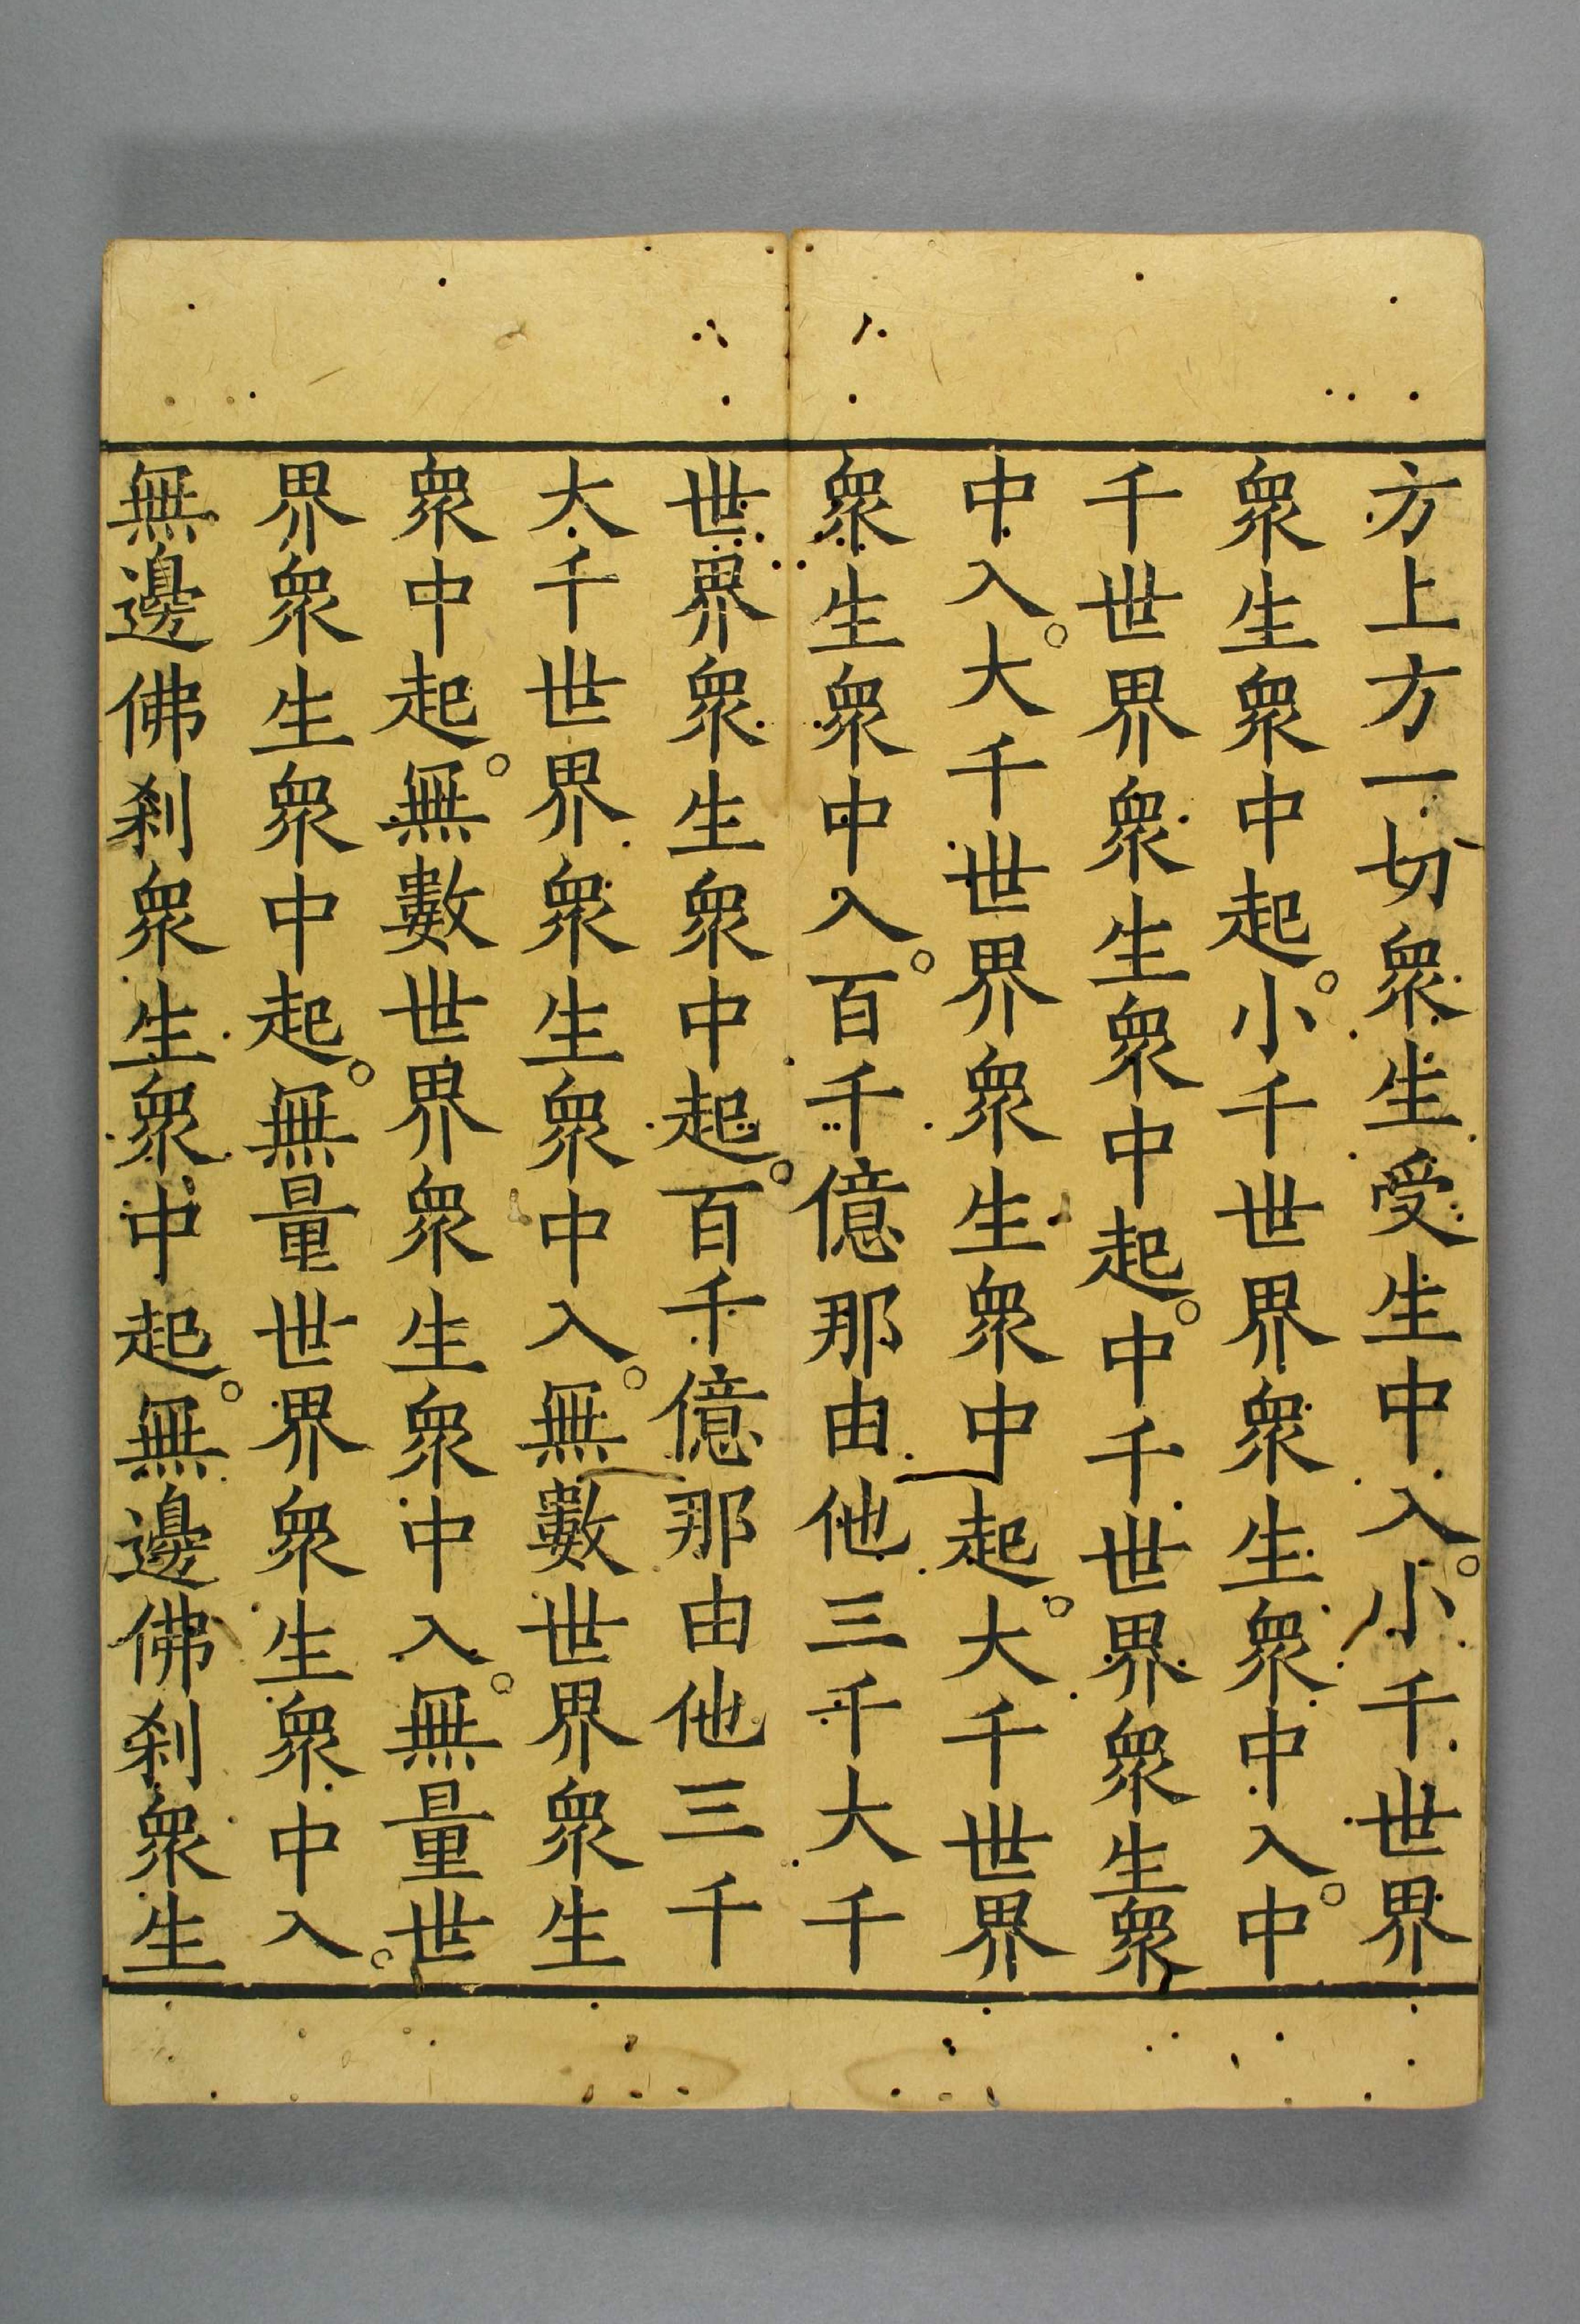 方上方一切衆生受生中入。小千世界
衆生衆中起。小千世界衆生衆中入。中
千世界衆生衆中起。中千世界衆生衆
中入。大千世界衆生衆中起。大千世界
衆生衆中入。百千億那由他三千大千
世界衆生衆中起。百千億那由他三千
大千世界衆生衆中入。無數世界衆生
衆中起。無數世界衆生衆中入。無量世
界衆生衆中起。無量世界衆生衆中入。
無邊佛刹衆生衆中起。無邊佛刹衆生